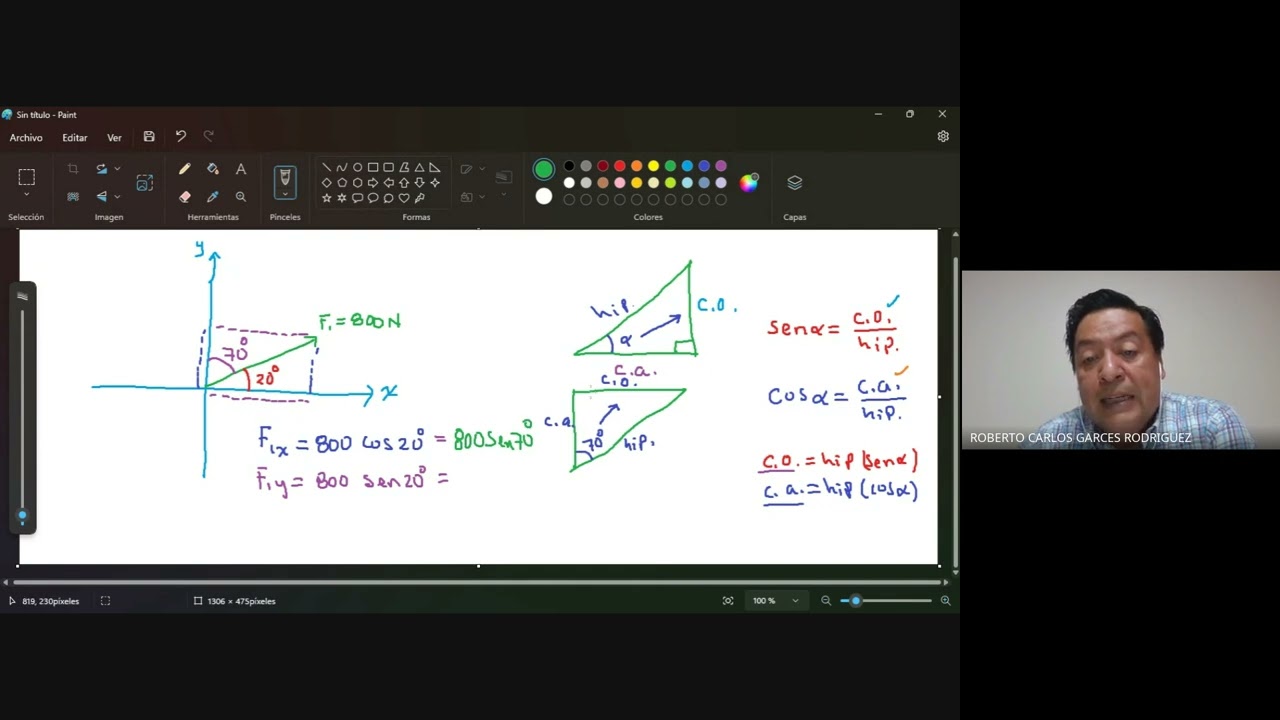 Sin título - Paint
Archivo Editar Ver
Selección Imagen Herramientas Pinceles Formas Colores Capas
y
F₁=800N
70°
20°
x
F₁x = 800 cos20° = 800Sen70°
F₁y = 800 sen20° =
hip.
c.o.
α
c.a.
c.o.
c.a.
70°
hip.
senα = c.o./hip.
cosα = c.a./hip.
c.o. = hip (senα)
c.a. = hip (cosα)
ROBERTO CARLOS GARCES RODRIGUEZ
819, 230píxeles 1306 × 475píxeles 100 %